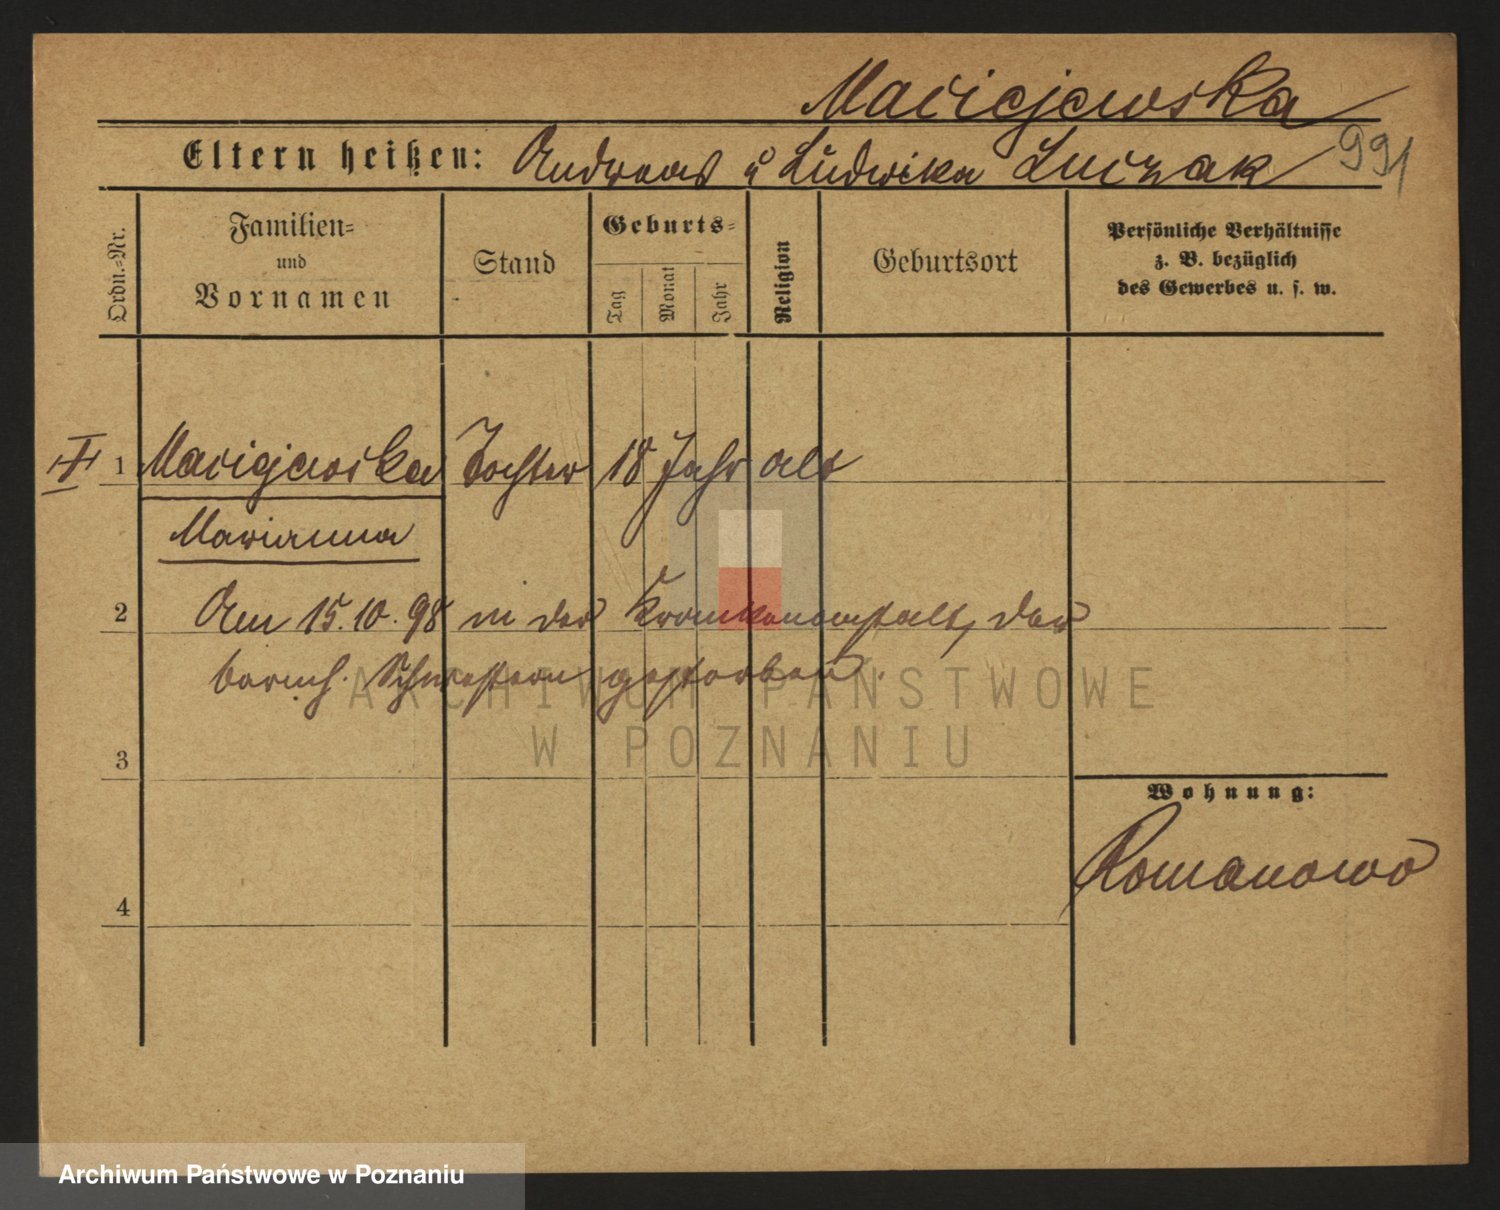 Maciejewska
991
Eltern heißen: Andreas u Ludwika Luczak
Ordn.-Nr.
Familien-
und
Vornamen
Stand
Geburts-
Tag
Monat
Jahr
Religion
Geburtsort
Persönliche Verhältnisse
z. B. bezüglich
des Gewerbes u. s. w.
1 Maciejewska Tochter 18 Jahr alt
Marianna
2 Am 15.10.98 in der Krankenanstalt, der
barmh. Schwestern gestorben.
3
Wohnung:
Romanowo
4
ARCHIWUM PAŃSTWOWE
W POZNANIU
Archiwum Państwowe w Poznaniu